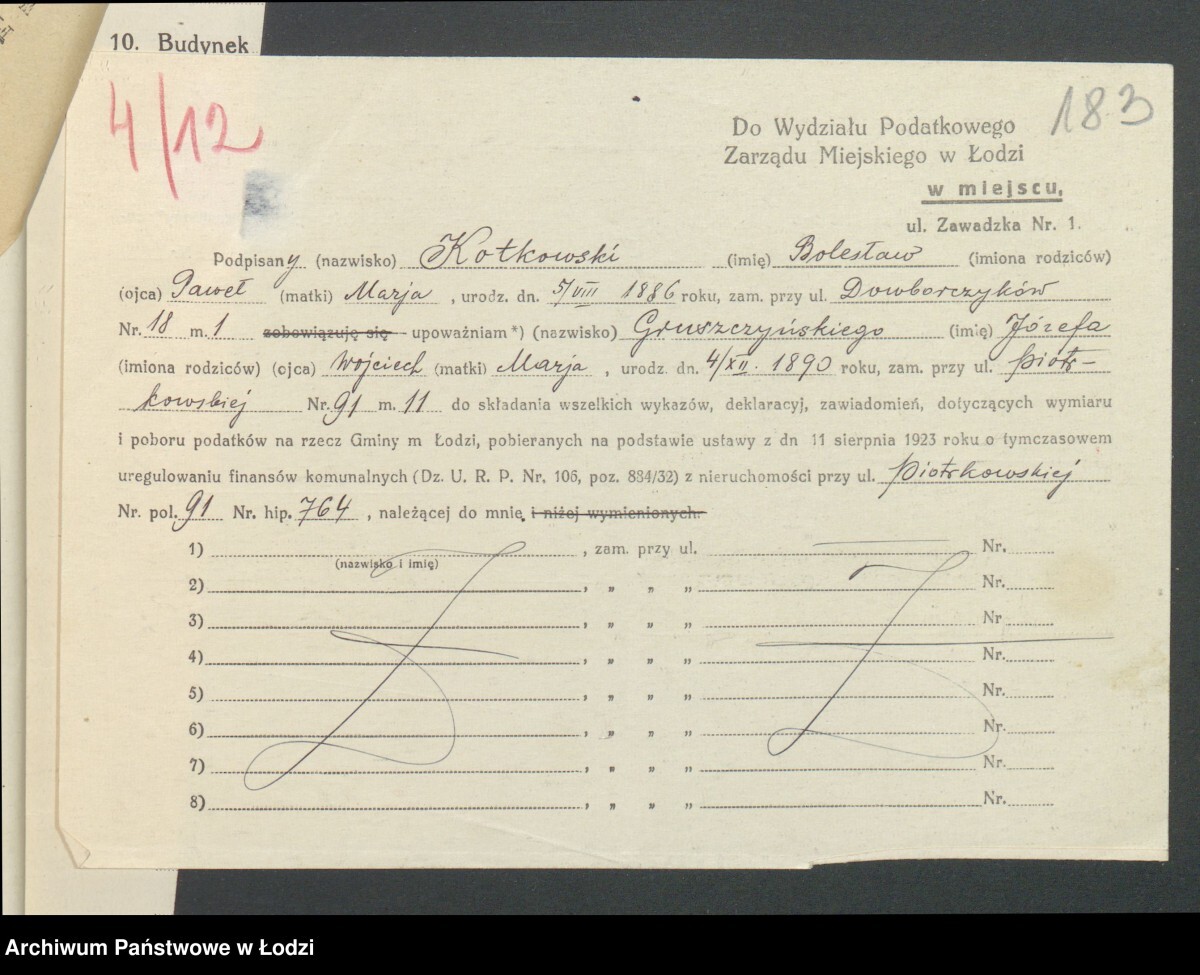 10. Budynek
4/12
183
Do Wydziału Podatkowego
Zarządu Miejskiego w Łodzi
w miejscu,
ul. Zawadzka Nr. 1.
Podpisany (nazwisko) Kotkowski (imię) Bolesław (imiona rodziców)
(ojca) Paweł (matki) Marja, urodz. dn. 5/VIII 1886 roku, zam. przy ul. Dowborczyków
Nr. 18 m. 1 zobowiązuję się upoważniam *) (nazwisko) Gruszczyńskiego (imię) Józefa
(imiona rodziców) (ojca) Wojciech (matki) Marja, urodz. dn. 4/XII. 1890 roku, zam. przy ul. Piotr-
kowskiej Nr. 91 m. 11 do składania wszelkich wykazów, deklaracyj, zawiadomień, dotyczących wymiaru
i poboru podatków na rzecz Gminy m Łodzi, pobieranych na podstawie ustawy z dn 11 sierpnia 1923 roku o tymczasowem
uregulowaniu finansów komunalnych (Dz. U. R. P. Nr. 106, poz. 884/32) z nieruchomości przy ul. Piotrkowskiej
Nr. pol. 91 Nr. hip. 764, należącej do mnie i niżej wymienionych:
1) , zam. przy ul. Nr.
(nazwisko i imię)
2) , „ „ „ Nr.
3) , „ „ „ Nr
4) , „ „ „ Nr.
5) , „ „ „ Nr.
6) , „ „ „ Nr.
7) , „ „ „ Nr.
8) , „ „ „ Nr.
Archiwum Państwowe w Łodzi